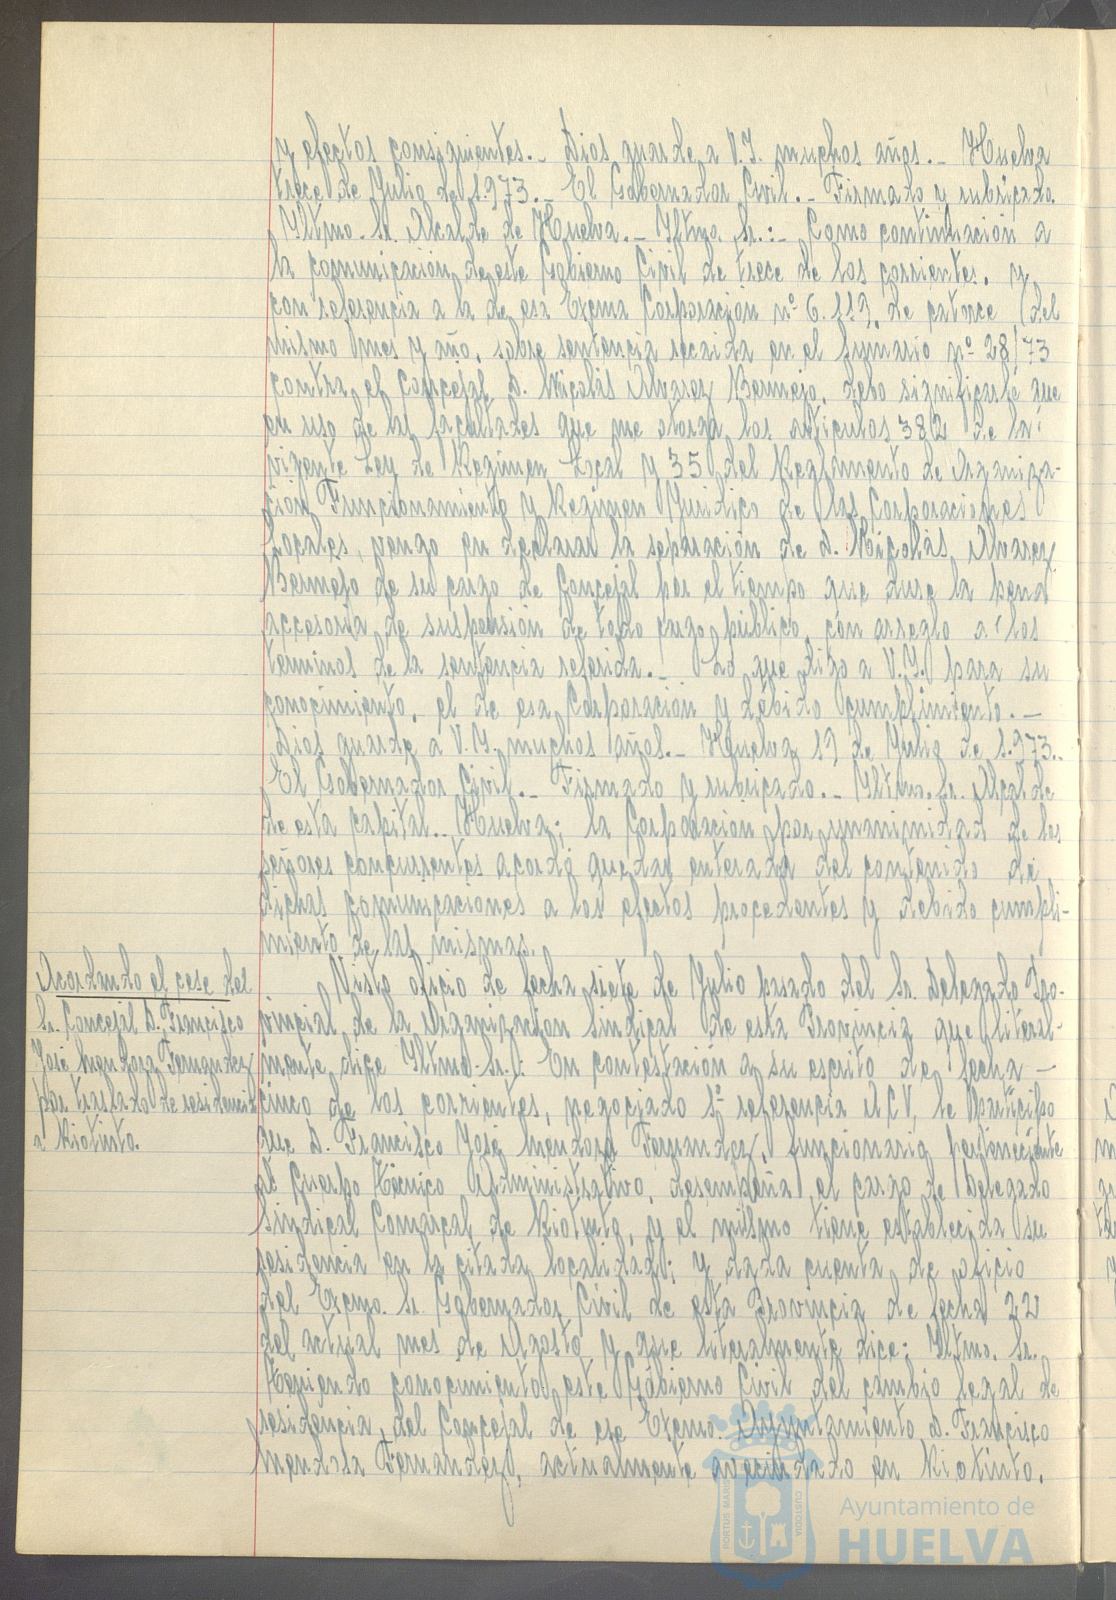 y efectos consiguientes.- Dios guarde a V.I. muchos años.- Huelva
trece de Julio de 1.973.- El Gobernador Civil.- Firmado y rubricado.
Iltmo. Sr. Alcalde de Huelva.- Iltmo. Sr.:- Como continuación a
la comunicación de este Gobierno Civil de trece de los corrientes, y
con referencia a la de esa Excma Corporación nº 6.119, de catorce del
mismo mes y año, sobre sentencia recaida en el sumario nº 28/73
contra el Concejal D. Nicolás Alvarez Bermejo, debo significarle que
en uso de las facultades que me otorga los articulos 382 de la
vigente Ley de Regimen Local y 35 del Reglamento de Organiza-
ción Funcionamiento y Regimen Juridico de las Corporaciones
Locales, vengo en declarar la separación de D. Nicolás Alvarez
Bermejo de su cargo de Concejal por el tiempo que dure la pena
accesoria de suspensión de todo cargo público, con arreglo a los
terminos de la sentencia referida.- Lo que digo a V.I. para su
conocimiento, el de esa Corporación y debido cumplimiento.-
Dios guarde a V.I. muchos años.- Huelva 19 de Julio de 1.973.-
El Gobernador Civil.- Firmado y rubricado.- Iltmo. Sr. Alcalde
de esta capital.- Huelva; la Corporación por unanimidad de los
señores concurrentes acordó quedar enterada del contenido de
dichas comunicaciones a los efectos procedentes y debido cumpli-
miento de las mismas.
Acordando el cese del
Sr. Concejal D. Francisco
José Mendoza Fernandez
por traslado de residencia
a Riotinto.
Visto oficio de fecha siete de Julio pasado del Sr. Delegado Pro-
vincial de la Organización Sindical de esta Provincia que literal-
mente dice Iltmo. Sr.: En contestación a su escrito de fecha -
cinco de los corrientes, negociado 1º referencia ACV, le participo
que D. Francisco José Mendoza Fernandez, funcionario perteneciente
al Cuerpo Técnico Administrativo, desempeña el cargo de Delegado
Sindical Comarcal de Riotinto, y el mismo tiene establecida su
residencia en la citada localidad; y dada cuenta de oficio
del Excmo. Sr. Gobernador Civil de esta Provincia de fecha 22
del actual mes de Agosto y que literalmente dice; Iltmo. Sr.
Teniendo conocimiento este Gobierno Civil del cambio legal de
residencia del Concejal de ese Excmo. Ayuntamiento D. Francisco
Mendoza Fernandez, actualmente avecindado en Riotinto.
PORTUS MARIS
CUSTODIA
Ayuntamiento de
HUELVA